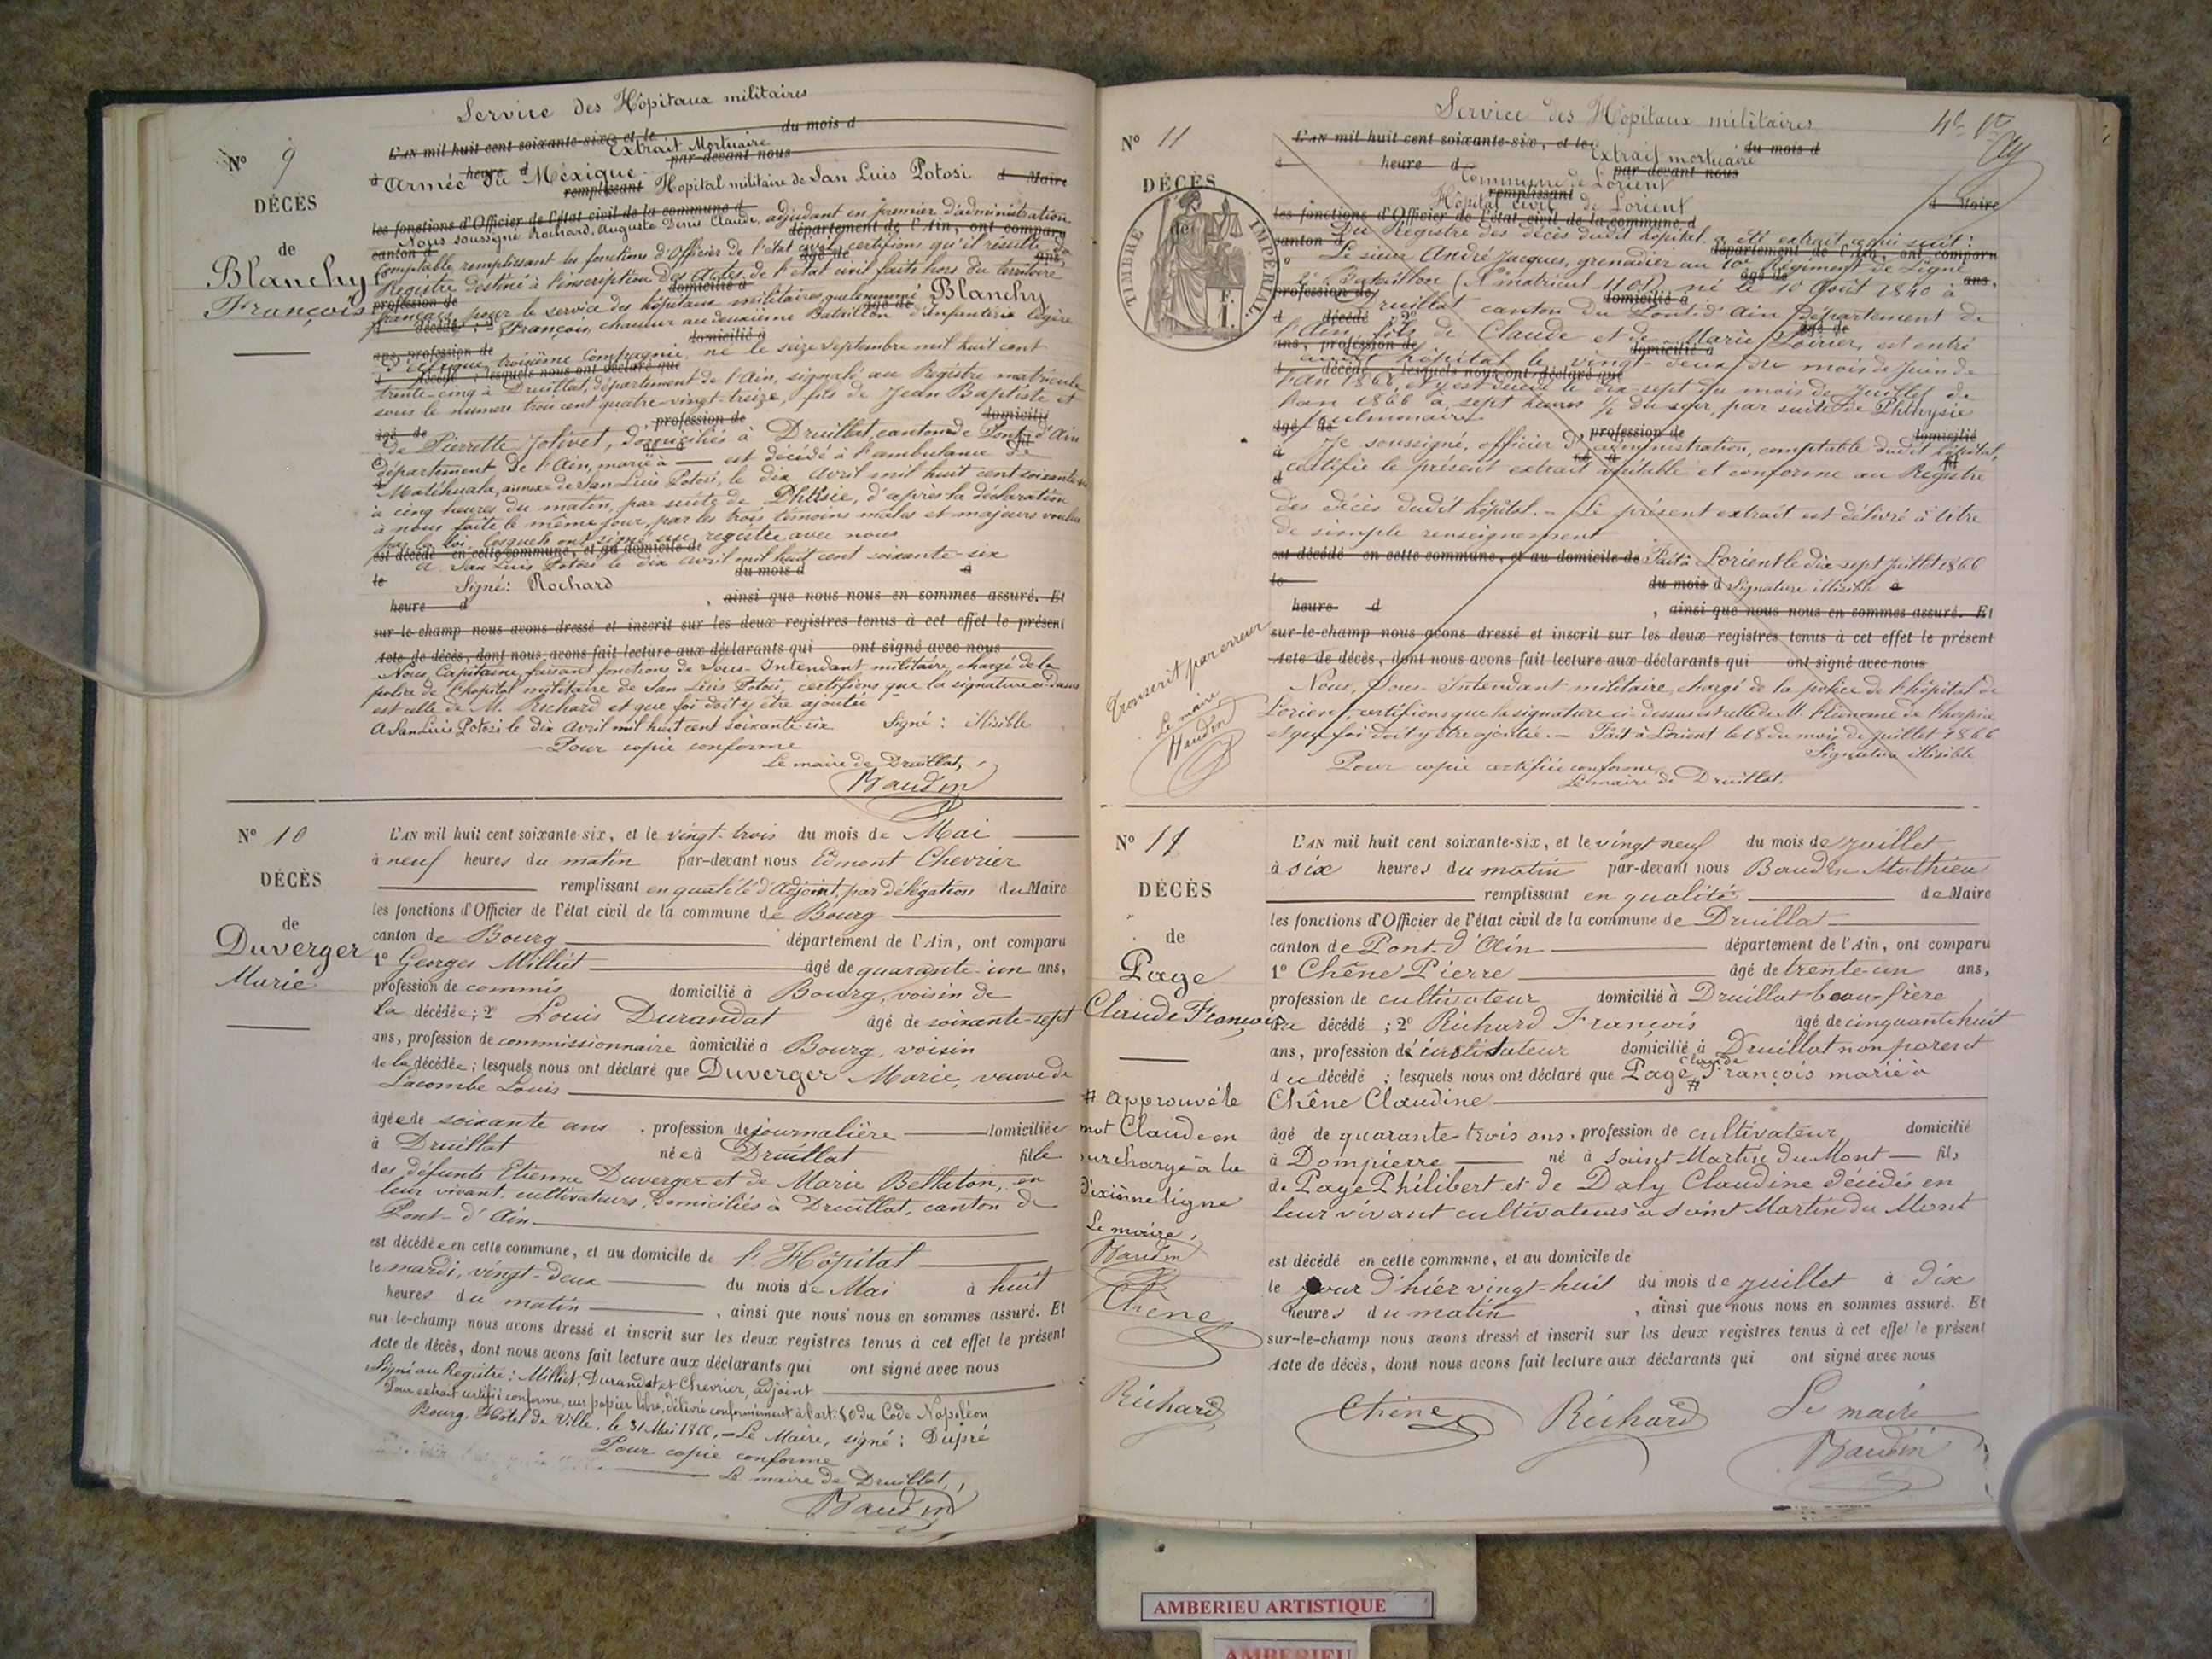 Service des Hôpitaux militaires
N° 9
DÉCÈS
de
Blanchy
François
L'AN mil huit cent soixante-six, et le du mois d
Extrait Mortuaire
par-devant nous
heure d
Armée du Méxique
remplissant Hopital militaire de San Luis Potosi d Maire
les fonctions d'Officier de l'état civil de la commune d
Nous soussigné Rochard, Auguste Denis Claude, adjudant en premier d'administration
canton d département de l'Ain, ont comparu
Comptable, remplissant les fonctions d'Officier de l'état civil, certifions qu'il résulte du
âgé de ans,
Registre destiné à l'inscription des Actes de l'état civil faits hors du territoire
profession de domicilié à
français, pour le service des hôpitaux militaires, que le nommé Blanchy
d décédé ; 2° âgé de
François, chasseur au deuxième Bataillon d'Infanterie légère
domicilié à
ans, profession de
d'Afrique, troisième Compagnie, né le seize septembre mil huit cent
d décédé ; lesquels nous ont déclaré que
trente-cinq à Druillat, département de l'Ain, signalé au Registre matricule
sous le numéro trois cent quatre-vingt-treize, fils de Jean Baptiste et
profession de domicilié
âgé de
de Pierrette Jolivet, domiciliés à Druillat, canton de Pont-d'Ain
né à fil
département de l'Ain, marié à — est décédé à l'ambulance de
Matéhuala, annexe de San Luis Potosi, le dix Avril mil huit cent soixante-six
à cinq heures du matin, par suite de Phtisie, d'après la déclaration
à nous faite le même jour, par les trois témoins mâles et majeurs voulus
par la loi, lesquels ont signé au registre avec nous
est décédé en cette commune, et au domicile de
A San Luis Potosi le dix avril mil huit cent soixante-six
le du mois d à
Signé: Rochard
heure d , ainsi que nous nous en sommes assuré. Et
sur-le-champ nous avons dressé et inscrit sur les deux registres tenus à cet effet le présent
Acte de décès, dont nous avons fait lecture aux déclarants qui ont signé avec nous
Nous, Capitaine faisant fonctions de Sous-Intendant militaire, chargé de la
police de l'hopital militaire de San Luis Potosi, certifions que la signature ci-dessus
est celle de M. Rochard et que foi doit y être ajoutée
A San Luis Potosi le dix Avril mil huit cent soixante six Signé : illisible
Pour copie conforme
Le maire de Druillat,
Baudin
N° 10
DÉCÈS
de
Duverger
Marie
L'AN mil huit cent soixante-six, et le vingt-trois du mois de Mai
à neuf heures du matin par-devant nous Edmont Chevrier
remplissant en qualité d'Adjoint, par délégation du Maire
les fonctions d'Officier de l'état civil de la commune de Bourg
canton de Bourg département de l'Ain, ont comparu
1° Georges Milliet âgé de quarante-un ans,
profession de commis domicilié à Bourg, voisin de
la décédée ; 2° Louis Durandat âgé de soixante-sept
ans, profession de commissionnaire domicilié à Bourg, voisin
de la décédée ; lesquels nous ont déclaré que Duverger Marie, veuve de
Lacombe Louis
âgée de soixante ans . profession de journalière domiciliée
à Druillat née à Druillat fille
des défunts Etienne Duverger et de Marie Bellaton, en
leur vivant, cultivateurs, domiciliés à Druillat, canton de
Pont-d'Ain
est décédée en cette commune, et au domicile de l'Hôpital
le mardi, vingt-deux du mois de Mai à huit
heures du matin , ainsi que nous nous en sommes assuré. Et
sur-le-champ nous avons dressé et inscrit sur les deux registres tenus à cet effet le présent
Acte de décès, dont nous avons fait lecture aux déclarants qui ont signé avec nous
Signé au Registre : Milliet, Durandat et Chevrier, adjoint
Pour extrait certifié conforme, sur papier libre, délivré conformément à l'art. 80 du Code Napoléon
Bourg, Hôtel de Ville, le 31 Mai 1866, — Le Maire, signé : Dupré
Pour copie conforme
Le maire de Druillat,
Baudin
Service des Hôpitaux militaires
N° 11
DÉCÈS
de
TIMBRE IMPERIAL
L'AN mil huit cent soixante-six, et le du mois d
Extrait mortuaire
heure d par-devant nous
Commune de Lorient
remplissant d Maire
Hôpital civil de Lorient
les fonctions d'Officier de l'état civil de la commune d
Du Registre des décès dudit hôpital a été extrait ce qui suit :
canton d département de l'Ain, ont comparu
Le sieur André Jacques, grenadier au 10e Régiment de Ligne
âgé de ans,
2e Bataillon (N° matricul 1101), né le 10 Août 1840 à
profession de domicilié à
Druillat canton du Pont-d'Ain département de
d décédé ; 2° âgé de
l'Ain, fils de Claude et de Marie Poirier, est entré
ans, profession de domicilié à
audit hôpital le vingt-deux du mois de Juin de
d décédé ; lesquels nous ont déclaré que
l'an 1866, et y est décédé le dix-sept du mois de Juillet de
l'an 1866 à sept heures ½ du soir, par suite de Phthysie
pulmonaire
âgé de profession de domicilié
Je soussigné, officier d'administration, comptable dudit hôpital,
à né à fil
certifie le présent extrait véritable et conforme au Registre
des décès dudit hôpital. — Le présent extrait est délivré à titre
de simple renseignement
est décédé en cette commune, et au domicile de Fait à Lorient le dix-sept juillet 1866
le du mois d Signature illisible à
heure d , ainsi que nous nous en sommes assuré. Et
sur-le-champ nous avons dressé et inscrit sur les deux registres tenus à cet effet le présent
Acte de décès, dont nous avons fait lecture aux déclarants qui ont signé avec nous
Nous, Sous-Intendant militaire, chargé de la police de l'hôpital de
Lorient, certifions que la signature ci-dessus est celle de M. l'Econome de l'hospice
et que foi doit y être ajoutée. — Fait à Lorient le 18 du mois de juillet 1866
Signature illisible
Pour copie certifiée conforme
Le maire de Druillat.
Transcrit par erreur
Le maire
Baudin
N° 11
DÉCÈS
de
Page
Claude François
L'AN mil huit cent soixante-six, et le vingt neuf du mois de juillet
à six heures du matin par-devant nous Baudin Mathieu
remplissant en qualité de Maire
les fonctions d'Officier de l'état civil de la commune de Druillat
canton de Pont-d'Ain département de l'Ain, ont comparu
1° Chêne Pierre âgé de trente-un ans,
profession de cultivateur domicilié à Druillat beau-frère
du décédé ; 2° Richard François âgé de cinquante huit
ans, profession d'instituteur domicilié à Druillat non parent
du décédé ; lesquels nous ont déclaré que Page # Claude François marié à
Chêne Claudine
âgé de quarante-trois ans, profession de cultivateur domicilié
à Dompierre né à Saint Martin du Mont fils
de Page Philibert et de Daly Claudine décédés en
leur vivant cultivateurs à Saint Martin du Mont
est décédé en cette commune, et au domicile de
le jour d'hier vingt-huit du mois de juillet à dix
heures du matin , ainsi que nous nous en sommes assuré. Et
sur-le-champ nous avons dressé et inscrit sur les deux registres tenus à cet effet le présent
Acte de décès, dont nous avons fait lecture aux déclarants qui ont signé avec nous
# Approuvé le
mot Claude en
surcharge à la
dixième ligne
Le maire,
Baudin
Chêne
Richard
Chêne Richard Le maire
Baudin
AMBERIEU ARTISTIQUE
AMBERIEU